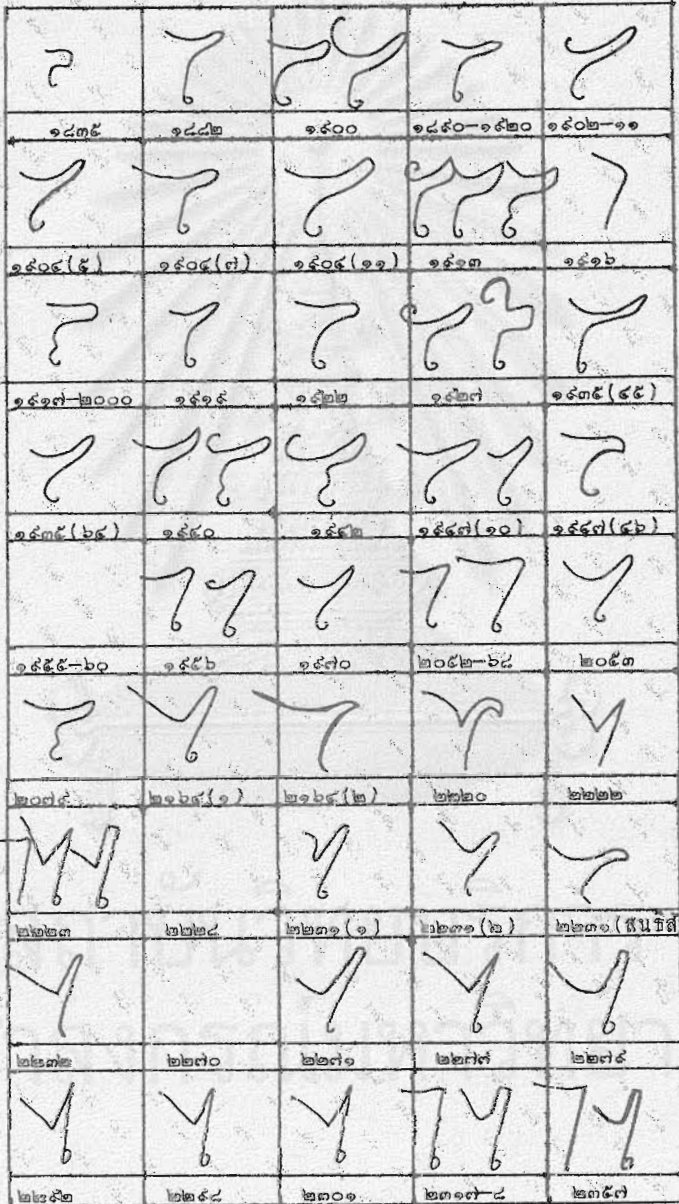 ๑๘๓๕ ๑๘๘๒ ๑๙๐๐ ๑๘๙๐-๑๙๒๐ ๑๙๐๒-๑๑
๑๙๐๔(๕) ๑๙๐๔(๗) ๑๙๐๔(๑๑) ๑๙๑๓ ๑๙๑๖
๑๙๑๗-๒๐๐๐ ๑๙๑๙ ๑๙๒๒ ๑๙๒๗ ๑๙๓๕(๔๕)
๑๙๓๕(๖๔) ๑๙๔๐ ๑๙๔๒ ๑๙๔๗(๑๐) ๑๙๔๗(๔๖)
๑๙๕๕-๖๐ ๑๙๕๖ ๑๙๗๐ ๒๐๕๒-๖๘ ๒๐๕๓
๒๐๗๙ ๒๑๖๙(๑) ๒๑๖๙(๒) ๒๒๒๐ ๒๒๒๒
๒๒๒๓ ๒๒๒๘ ๒๒๓๑(๑) ๒๒๓๑(๒) ๒๒๓๑(สนธิสั
๒๒๓๒ ๒๒๗๐ ๒๒๗๑ ๒๒๗๗ ๒๒๗๙
๒๒๙๒ ๒๒๙๘ ๒๓๐๑ ๒๓๑๗-๘ ๒๓๕๗